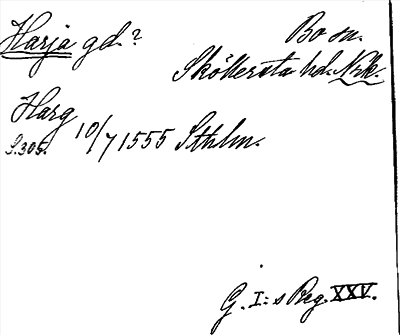 Harja gd.? Bo sn.
Sköllersta hd. Nrk.
Harg 10/7 1555 Sthlm.
S. 305.
G. I:s Reg. XXV.